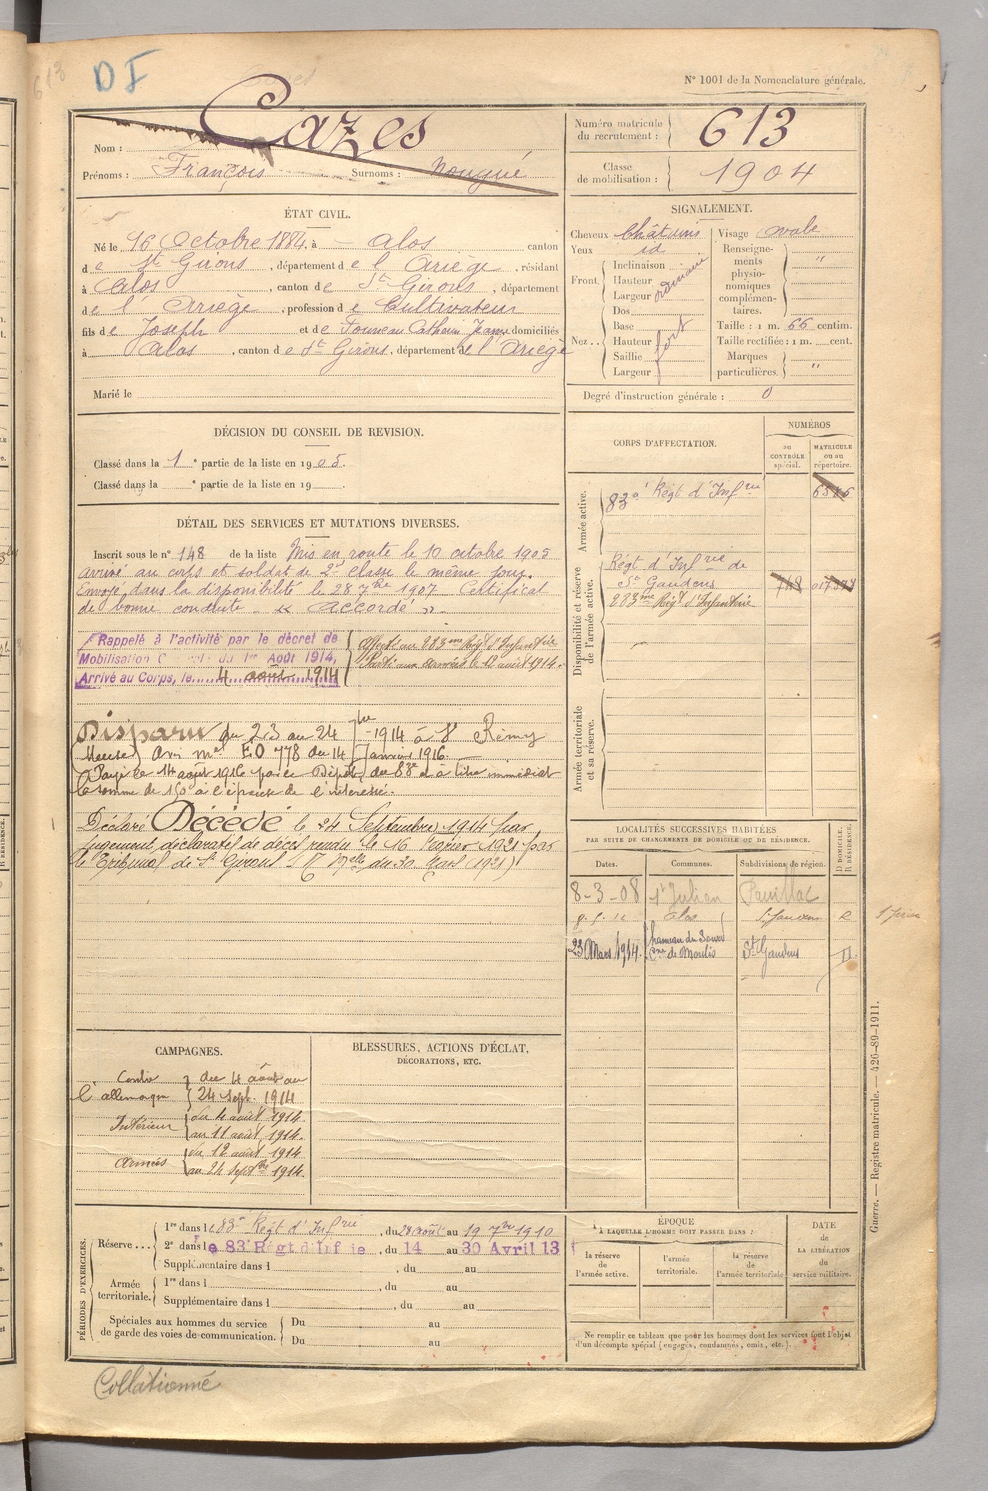 613
D I
N° 1001 de la Nomenclature générale.
Nom : Cazes
Prénoms : François Surnoms : Nougué
Numéro matricule du recrutement : 613
Classe de mobilisation : 1904
ÉTAT CIVIL.
Né le 16 Octobre 1884, à Alos canton
de St Girons, département de l'Ariège, résidant
à Alos, canton de St Girons, département
de l'Ariège, profession de Cultivateur
fils de Joseph et de Catherine Jeanne domiciliés
à Alos, canton de St Girons, département de l'Ariège
Marié le
SIGNALEMENT.
Cheveux Châtains
Yeux id
Front. Inclinaison
Hauteur
Largeur
Nez.. Dos
Base
Hauteur
Saillie
Largeur
fort
Visage ovale
Renseignements physionomiques complémentaires. "
Taille : 1 m. 66 centim.
Taille rectifiée : 1 m. cent.
Marques particulières. "
Degré d'instruction générale : 0
DÉCISION DU CONSEIL DE REVISION.
Classé dans la 1e partie de la liste en 1905.
Classé dans la e partie de la liste en 19
CORPS D'AFFECTATION.
NUMÉROS
au CONTRÔLE spécial.
MATRICULE ou au répertoire.
Armée active.
83e Régt d'Infrie
Disponibilité et réserve de l'armée active.
Régt d'Infrie de
St Gaudens 748
283me Régt d'Infanterie
Armée territoriale et sa réserve.
DÉTAIL DES SERVICES ET MUTATIONS DIVERSES.
Inscrit sous le n° 148 de la liste Mis en route le 10 octobre 1905
arrivé au corps et soldat de 2e classe le même jour.
Envoyé dans la disponibilité le 28 7bre 1907. Certificat
de bonne conduite « accordé »
Rappelé à l'activité par le décret de
Mobilisation Générale du 1er Août 1914,
Arrivé au Corps, le 4 août 1914
Affecté au 283me Régt d'Infanterie
Parti aux armées le 12 août 1914.
Disparu du 23 au 24 7bre 1914 à St Rémy
(Meuse) Avis mel EO 778 du 14 Janvier 1916.
Payé le 14 août 1916 par le Dépôt du 83e à titre immédiat
la somme de 150f à l'épouse de l'intéressé.
Déclaré Décédé le 24 Septembre 1914 par
jugement déclaratif de décès rendu le 16 Février 1921 par
le Tribunal de St Girons du 30 Mars 1921)
LOCALITÉS SUCCESSIVES HABITÉES
PAR SUITE DE CHANGEMENTS DE DOMICILE OU DE RÉSIDENCE.
Dates. Communes. Subdivisions de région. D. DOMICILE. R. RÉSIDENCE.
8-3-08 St Julien Pauillac
Alos St Gaudens R
23 Mars 1914. hameau du
Cne de Moulis St Gaudens D
CAMPAGNES.
Contre l'allemagne du 4 août au
24 Sept. 1914
Intérieur du 4 août 1914.
au 11 août 1914.
Armées du 12 août 1914.
au 24 Septbre 1914.
BLESSURES, ACTIONS D'ÉCLAT,
DÉCORATIONS, ETC.
PÉRIODES D'EXERCICES.
Réserve... 1re dans le 83e Régt d'Infrie, du 28 août au 19 7bre 1910
2e dans le 83e Régt d'Infie, du 14 au 30 Avril 13
Supplémentaire dans l , du au
Armée territoriale. 1re dans l , du au
Supplémentaire dans l , du au
Spéciales aux hommes du service
de garde des voies de communication. Du au
Du au
ÉPOQUE
À LAQUELLE L'HOMME DOIT PASSER DANS :
la réserve de l'armée active.
l'armée territoriale.
la réserve de l'armée territoriale
DATE de LA LIBÉRATION du service militaire.
Ne remplir ce tableau que pour les hommes dont les services font l'objet
d'un décompte spécial (engagés, condamnés, omis, etc.).
Guerre. — Registre matricule. — 426-89-1911.
Collationné